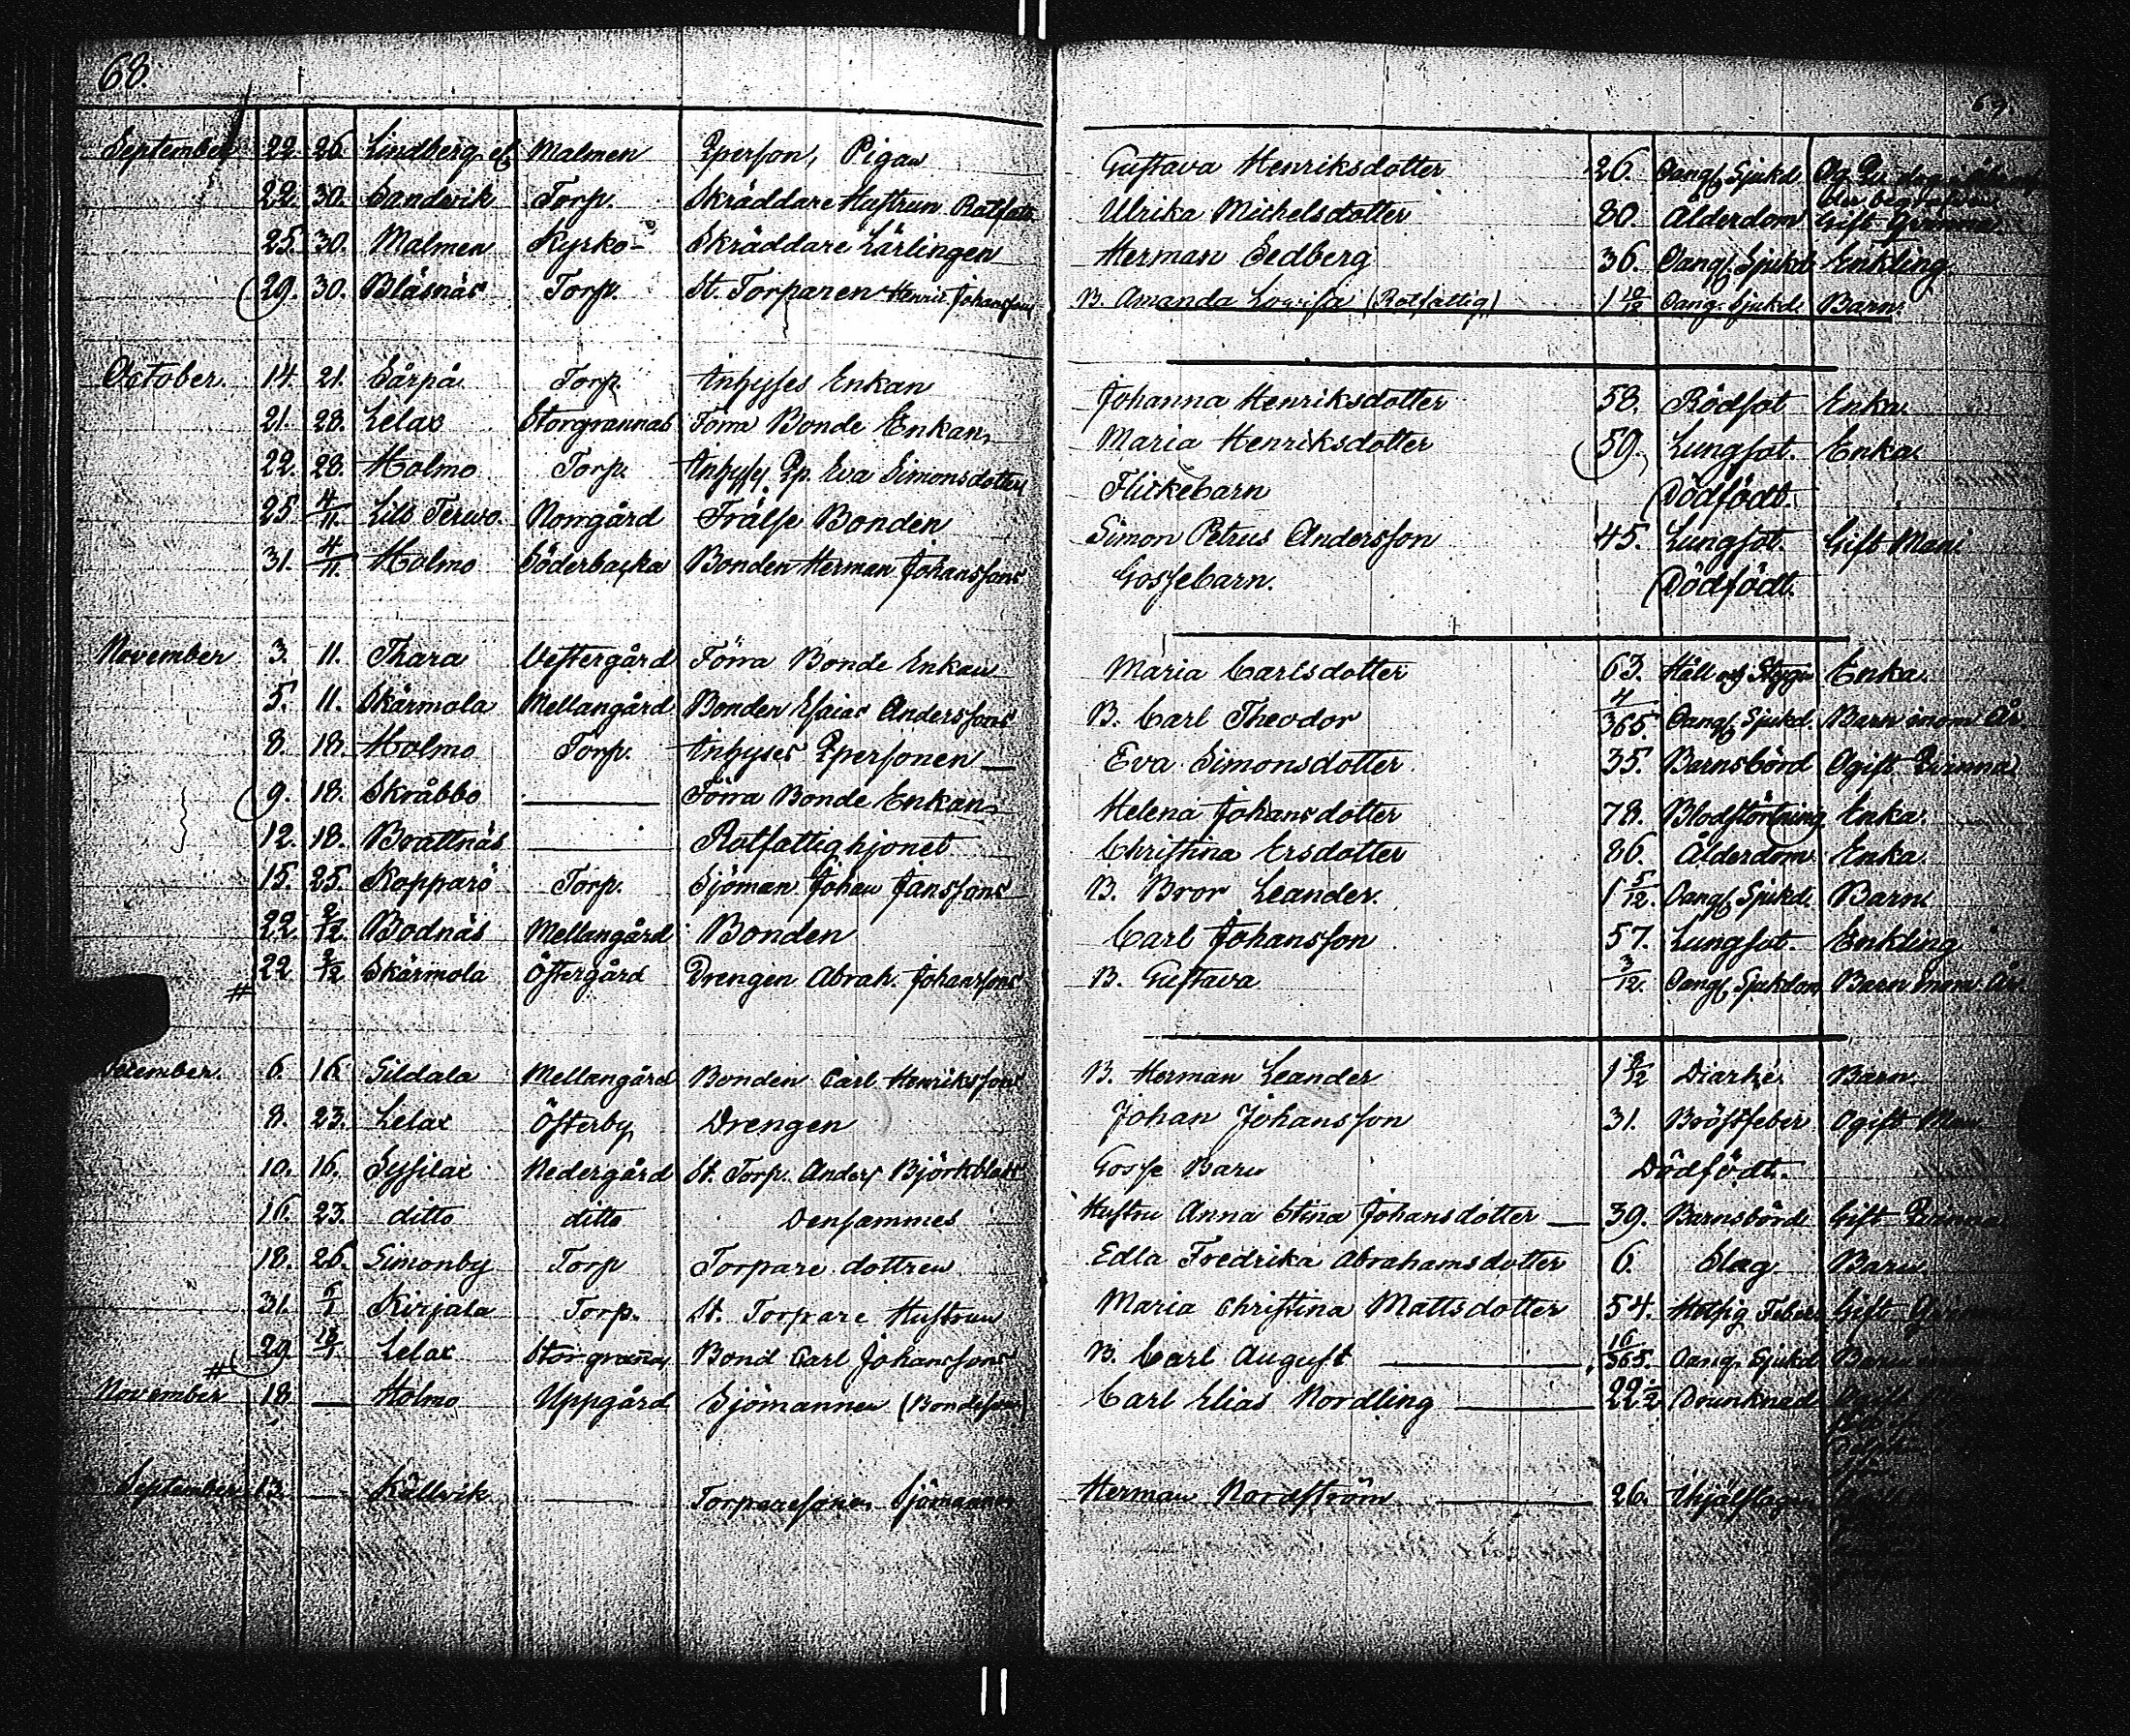 68.
69.
September 22. 26. Lindberg Malmen Qperson, Pigan Gustava Henriksdotter 26. Oang. Sjukd.
22. 30. Sandvik Torp. Skräddare Hustrun Rotfatt. Ulrika Michelsdotter 80. Ålderdom Gift Qvinna.
25. 30. Malmen Kyrko- Skräddare Lärlingen Herman Sedberg 36. Oang. Sjukd. Enkling
29. 30. Bläsnäs Torp. St. Torparen Henric Johanssons B. Amanda Lovisa (Rotfattig) 1 10/12 Oang. Sjukd. Barn.
October. 14. 21. Sårpå Torp. Inhyses Enkan Johanna Henriksdotter 58. Rödsot Enka.
21. 28. Lelax Storgrannas Förra Bonde Enkan Maria Henriksdotter 59. Lungsot. Enka.
22. 28. Holmo Torp. Inhyses Qp. Eva Simonsdotters Flickebarn Dödfödt.
25 4/11. Lill Terwo. Norrgård Frälse Bonden Simon Petrus Andersson 45. Lungsot. Gift Man
31. 4/11. Holmo Söderbacka Bonden Herman Johanssons Gossebarn. Dödfödt.
November 3. 11. Thara Vestergård Förra Bonde Enkan Maria Carlsdotter 63. Håll och Styng Enka.
5. 11. Skärmola Mellangård Bonden Esaias Anderssons B. Carl Theodor 4/365. Oang. Sjukd. Barn inom År
8. 18. Holmo Torp. Inhyses Qpersonen Eva Simonsdotter 35. Barnsbörd Ogift Qvinna
9. 18. Skråbbo Förra Bonde Enkan Helena Johansdotter 78. Blodstörtning Enka.
12. 18. Brattnäs Rotfattighjonet Christina Ersdotter 86. Ålderdom Enka.
15. 25. Kopparö Torp. Sjöman Johan Janssons B. Bror Leander. 1 5/12. Oang. Sjukd. Barn
22 2/12 Bodnäs Mellangård Bonden Carl Johansson 57. Lungsot. Enkling
# 22 2/12 Skärmola Östergård Drengen Abrah. Johanssons B. Gustava 3/12. Oang. Sjukdom Barn inom År.
December. 6. 16. Gildala Mellangård Bonden Carl Henrikssons B. Herman Leander Diarhé Barn.
8. 23. Lelax Österby Drengen Johan Johansson 31. Bröstfeber Ogift Man
10. 16. Syssilax Nedergård St. Torp. Anders Björkblads Gosse Barn Dödfödt.
16. 23. ditto ditto Densammes Hustru Anna Stina Johansdotter 39. Barnsbörd Gift Qvinna
18. 26. Simonby Torp Torpare dottren Edla Fredrika Abrahamsdotter 6. Slag Barn
31. 6/1 Kirjala Torp. St. Torpare Hustrun Maria Christina Mattsdotter 54. Hetsig Feber Gift
# 29 13/1 Lelax Storgrannas Bond Carl Johanssons B. Carl August 16/365. Oang. Sjukd. Barn
November 18. Holmo Uppgård Sjömannen (Bondeson) Carl Elias Nordling 22 1/2 Drunknad Ogift
September 13. Källvik Torparesonen Sjömannen Herman Nordström 26. Ihjälslagen